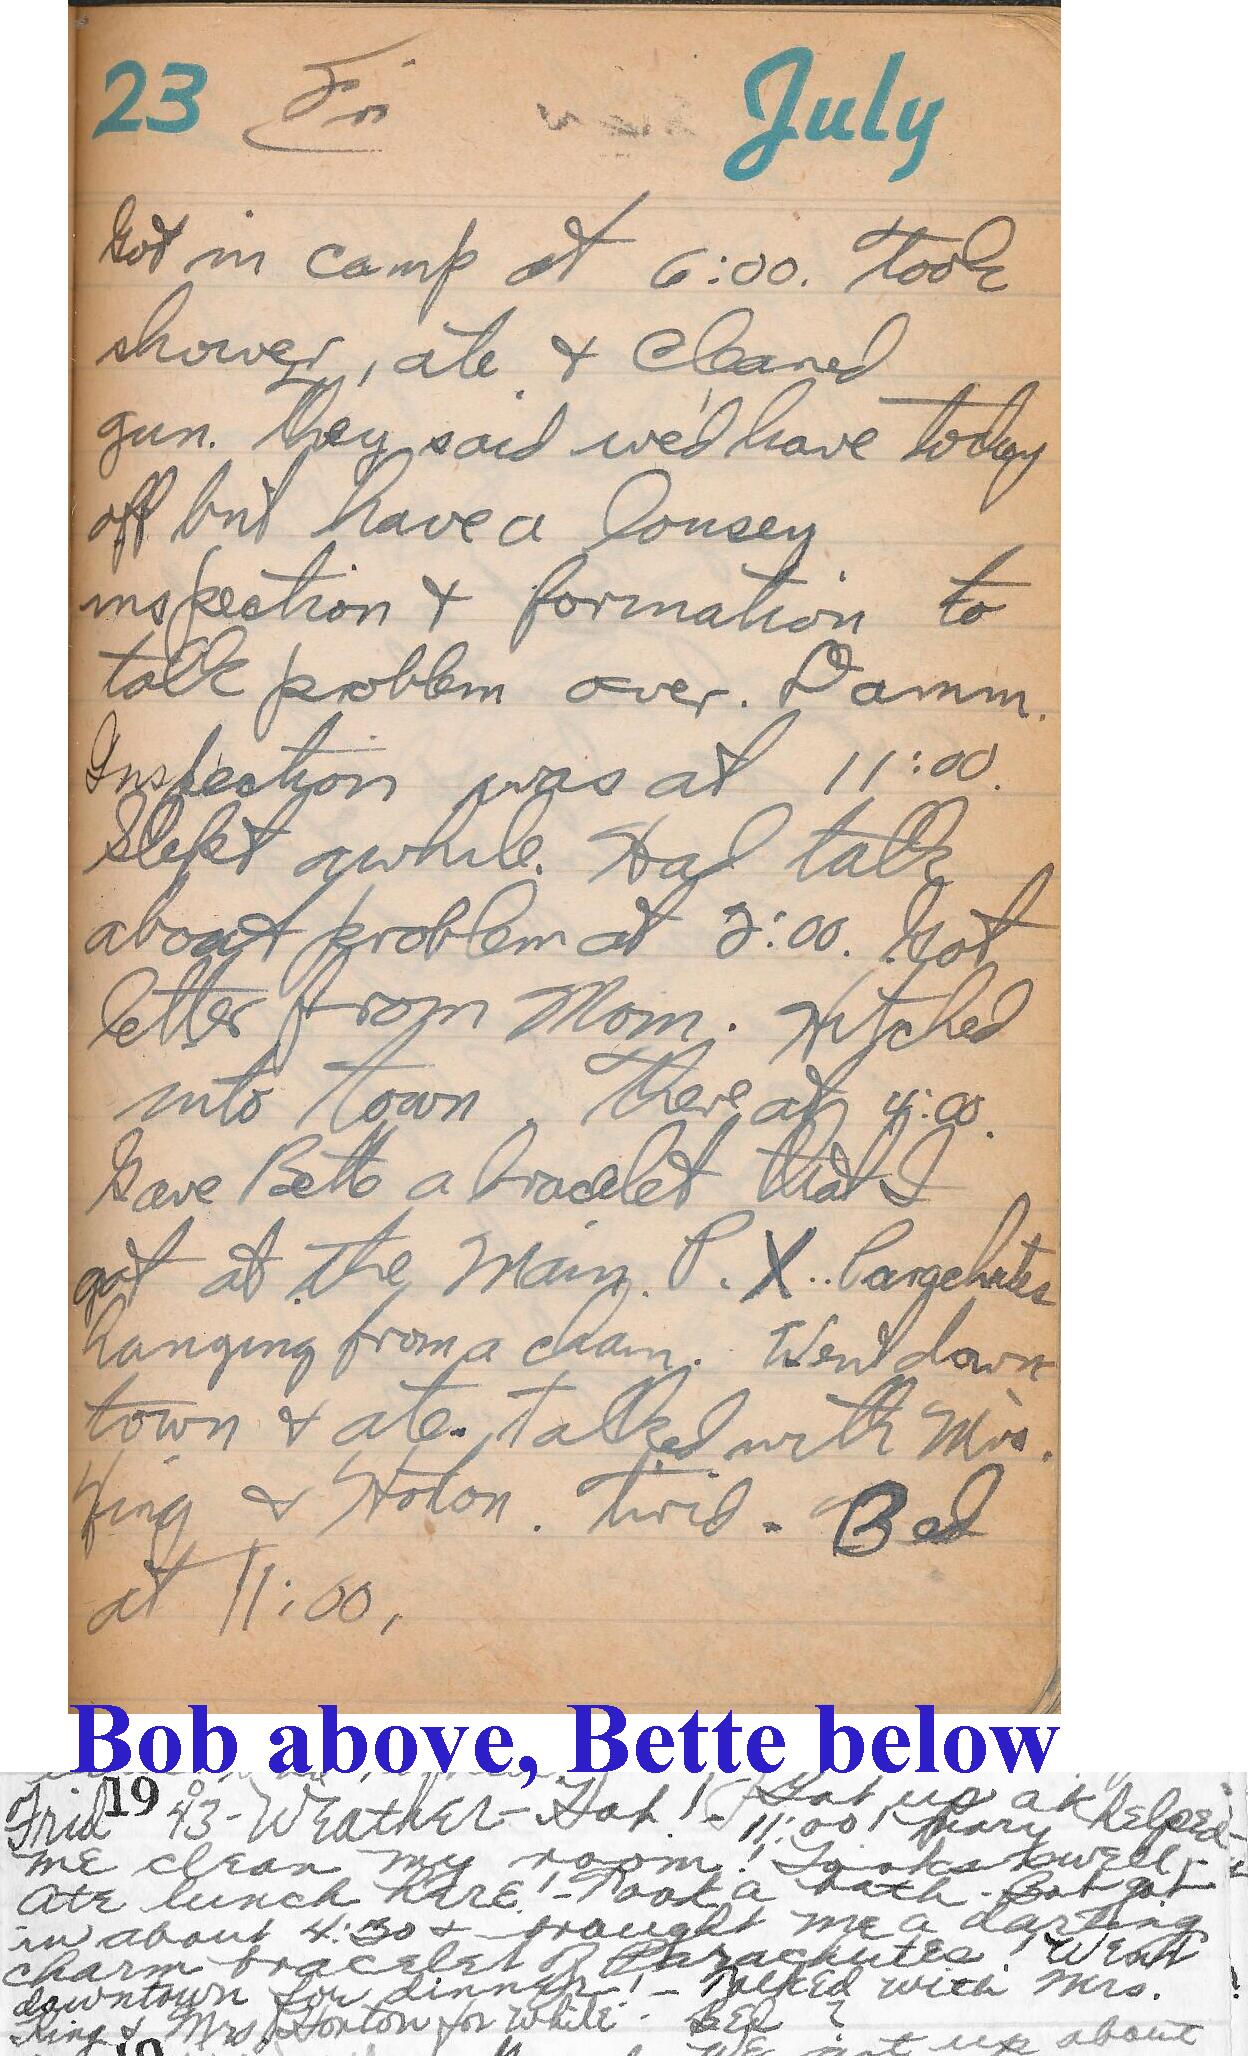 23 Fri July
Got in camp at 6:00. Took
shower, ate & cleaned
gun. They said we'd have today
off but have a lousey
inspection & formation to
talk problem over. Damm.
Inspection was at 11:00.
Slept awhile. Had talk
about problem at 2:00. Got
letter from Mom. Hitched
into town. There at 4:00.
Gave Bette a bracelet that I
got at the Main P.X.. Parachutes
hanging from a chain. Went down
town & ate. Talked with Mrs.
King & Hoton. Tirid. Bed
at 11:00.
Bob above, Bette below
Frid 19 43 - Weather - Hot! - Got up at
11:00! Mary helped
me clean my room! Looks swell,
Ate lunch here! - Took a bath - Bob got
in about 4:30 & brought me a darling
charm bracelet of Parachutes! Went
downtown for dinner! - Talked with Mrs.
King & Mrs Horton for while - Bed ?
19
got up about